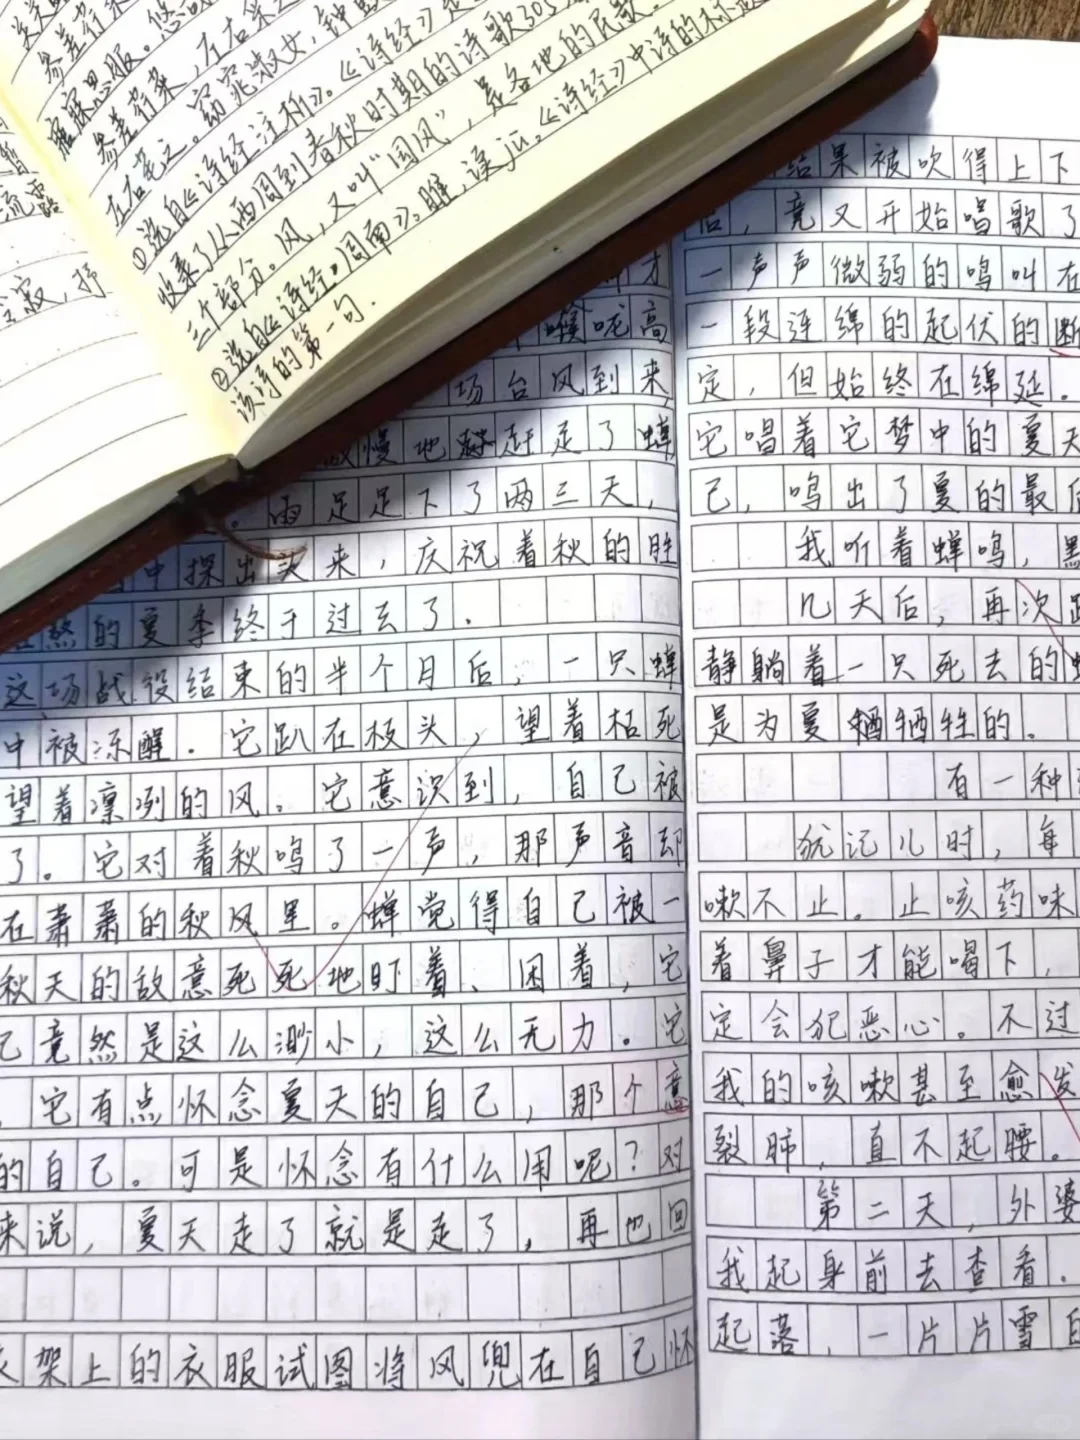 参差荇菜，左右采
寤寐思服。悠
参差荇菜，左右
左右芼之。窈窕淑女，钟
①选自《诗经注析》。《诗经》
收录了从西周到春秋时期的诗歌305
三个部分。风，又叫“国风”，是各地的民歌.
②选自《诗经·周南》。雎，读jū，《诗经》中诗的标题
该诗的第一句.
流露
寂，抒
才
喉呢高
场台风到来
慢地赶走了蝉
。雨足足下了两三天，
中探出头来，庆祝着秋的胜
熬的夏季终于过去了.
这场战役结束的半个月后，一只蝉
中被冻醒.它趴在枝头，望着枯死
望着凛冽的风。它意识到，自己被
了。它对着秋鸣了一声，那声音却
在萧萧的秋风里。蝉觉得自己被一
秋天的敌意死死地盯着、困着，它
己竟然是这么渺小，这么无力。它
，它有点怀念夏天的自己，那个意
的自己。可是怀念有什么用呢？对
来说，夏天走了就是走了，再也回
衣架上的衣服试图将风兜在自己怀
结果被吹得上下
后，竟又开始唱歌了
一声声微弱的鸣叫在
一段连绵的起伏的断
定，但始终在绵延.
它唱着它梦中的夏天
己，鸣出了夏的最后
我听着蝉鸣，
几天后，再次路
静躺着一只死去的
是为夏牺牲的.
有一种
犹记儿时，每
嗽不止。止咳药味
着鼻子才能喝下，
定会犯恶心。不过
我的咳嗽甚至愈发
裂肺，直不起腰.
第二天，外婆
我起身前去查看.
起落，一片片雪白